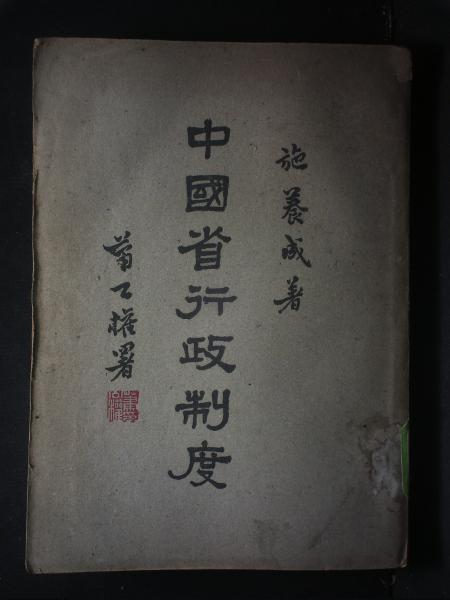 施養成著
中國省行政制度
蕭公權署